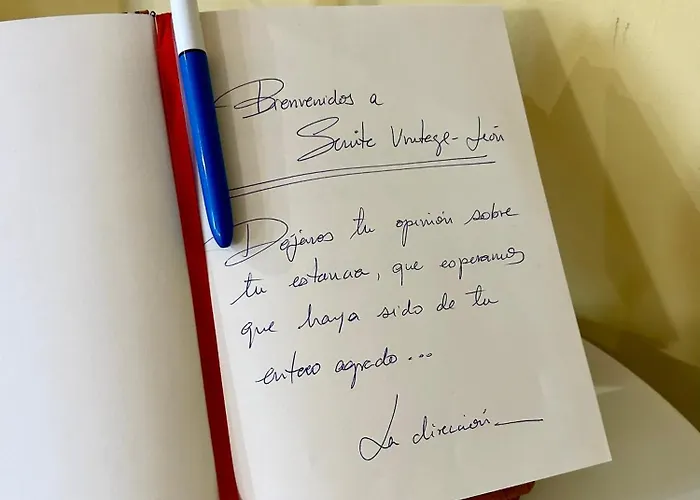 Bienvenidos a
Suite Vintage - León
Déjanos tu opinión sobre
tu estancia, que esperamos
que haya sido de tu
entero agrado...
La dirección